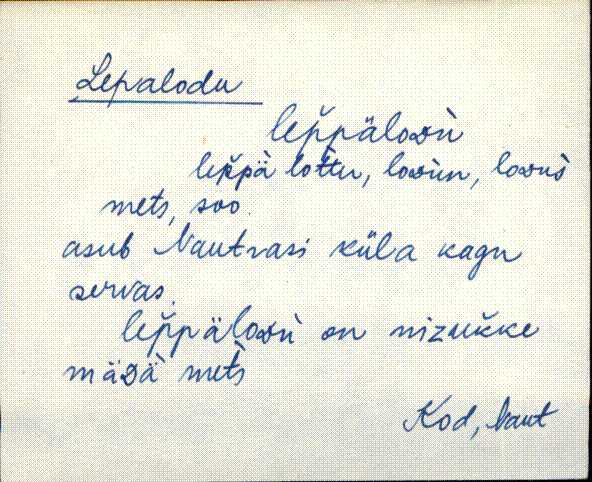 Lepalodu
lep̆pälᴏᴅù
lep̆pà lot̀tu, lᴏᴅùn, lᴏᴅùs̀
mets, soo.
asub Nautrasi küla kagu
servas.
lep̆pälᴏᴅù on nizuk̆ke
mäᴅà met̀s
Kod, Naut